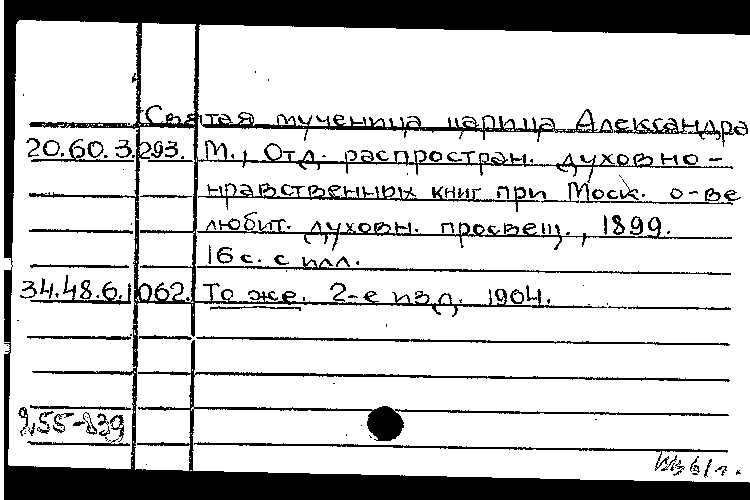 Святая мученица царица Александра
20.60.3.293. М., Отд. распростран. духовно-
нравственных книг при Моск. о-ве
любит. духовн. просвещ., 1899.
16 с. с илл.
34.48.6.1062. То же. 2-е изд. 1904.
9,55-839